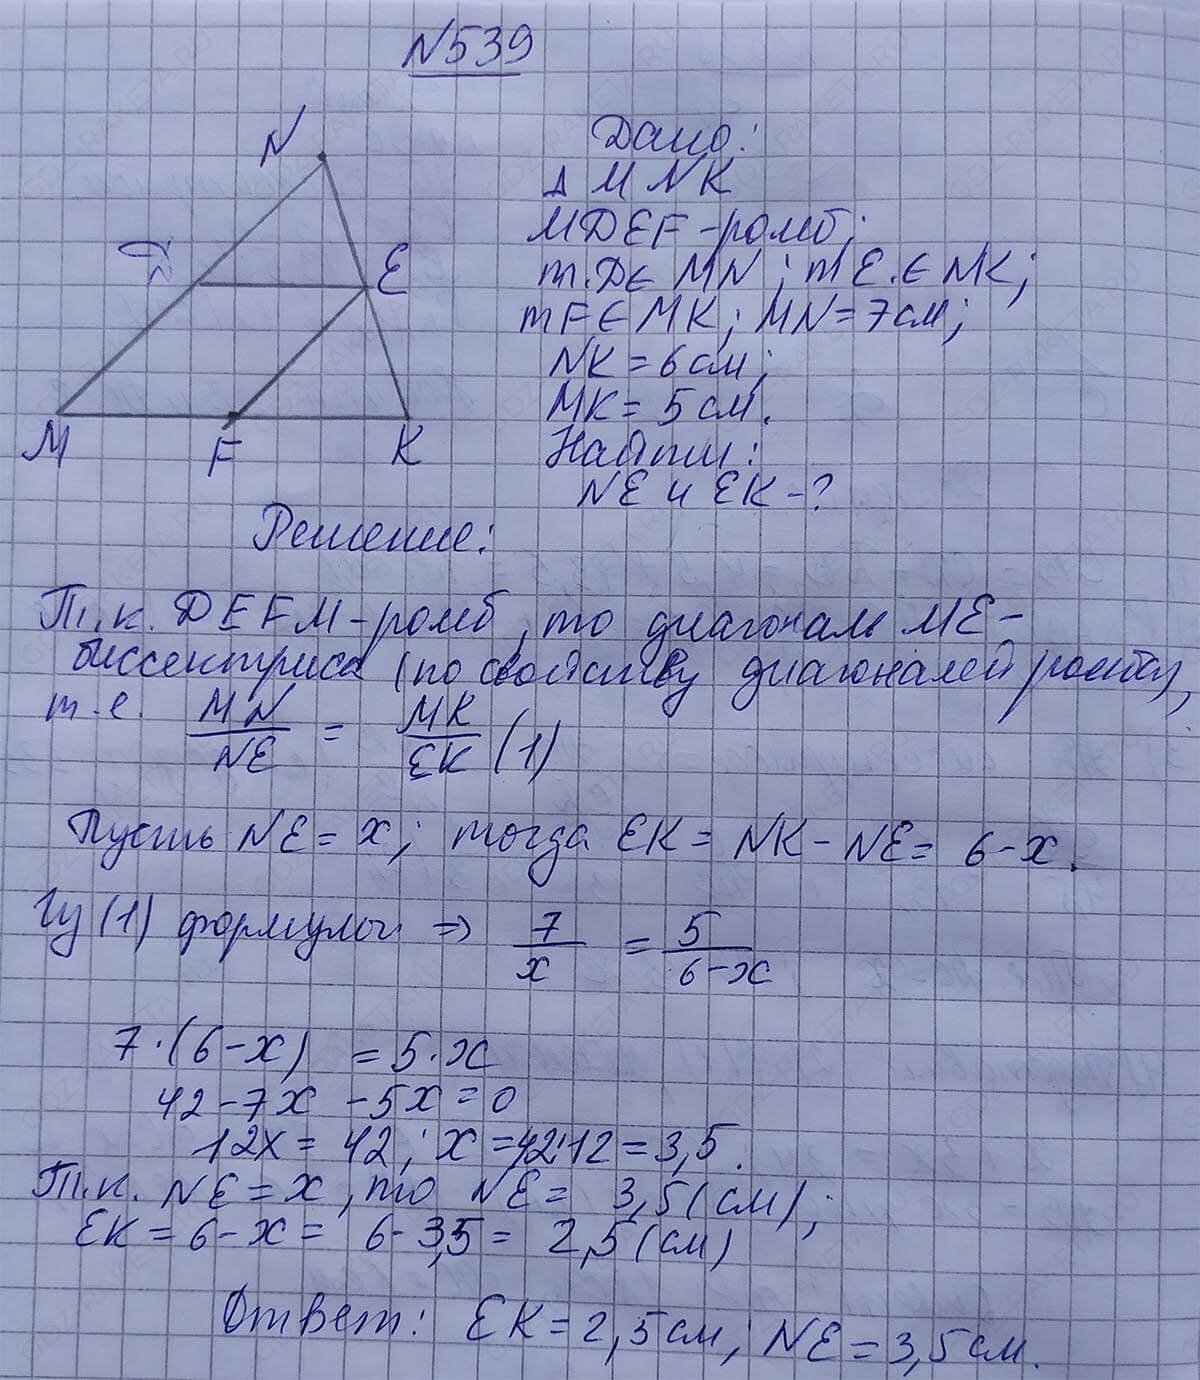 N539
N
D
E
M
F
K
Дано:
Δ MNK
MDEF-ромб;
т.D∈ MN; т E.∈ MK;
т F∈ MK; MN=7см;
NK=6см;
MK= 5см.
Найти:
NE и EK-?
Решение:
Т.к. DEFM-ромб, то диагональ ME-
биссектриса (по свойству диагоналей ромба),
т.е. MN/NE = MK/EK (1)
Пусть NE=x; тогда EK= NK-NE= 6-x.
Из (1) формулы ⇒ 7/x = 5/6-x
7·(6-x) =5·x
42-7x -5x=0
12x= 42; x=42:12=3,5.
Т.к. NE=x, то NE= 3,5(см);
EK=6-x= 6-3,5= 2,5(см)
Ответ: EK=2,5см; NE=3,5см.